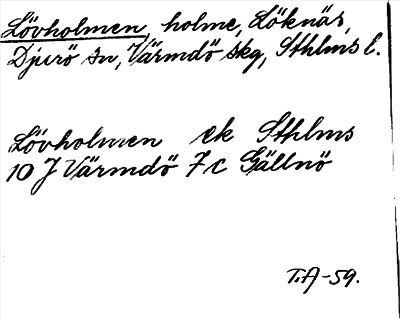 Lövholmen, holme, Löknäs,
Djurö sn, Värmdö skg, Sthlms l.
Lövholmen ek Sthlms
10 J Värmdö 7 c Gällnö
T.A-59.